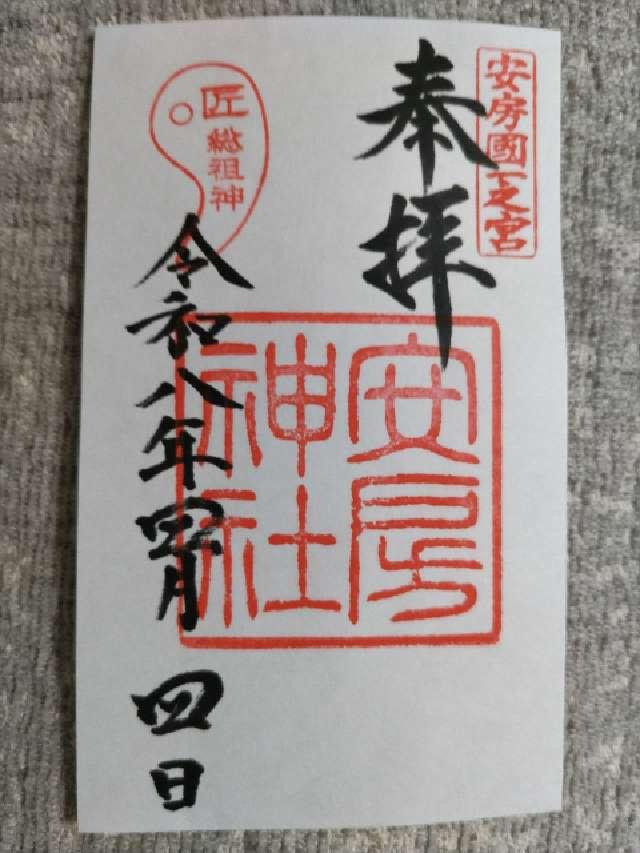 安房國一之宮
奉拝
安房
神社
匠
総祖神
令和八年四月四日